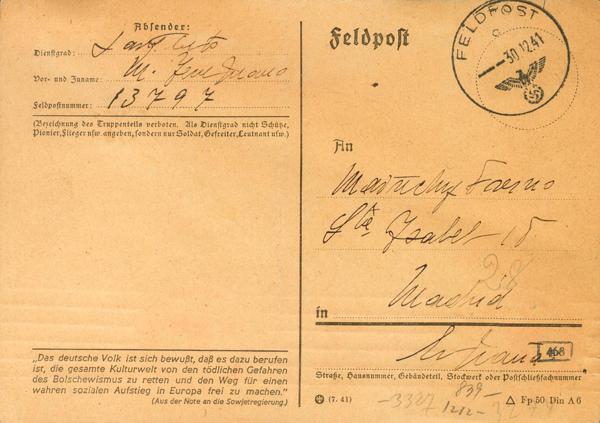 Absender:
Dienstgrad:
Vor- und Zuname: M.
Feldpostnummer: 13797
(Bezeichnung des Truppenteils verboten. Als Dienstgrad nicht Schütze,
Pionier, Flieger usw. angeben, sondern nur Soldat, Gefreiter, Leutnant usw.)
„Das deutsche Volk ist sich bewußt, daß es dazu berufen
ist, die gesamte Kulturwelt von den tödlichen Gefahren
des Bolschewismus zu retten und den Weg für einen
wahren sozialen Aufstieg in Europa frei zu machen."
(Aus der Note an die Sowjetregierung.)
Feldpost
FELDPOST
30.12.41
An
Sta Isabel 15
28
in Madrid
468
Straße, Hausnummer, Gebäudeteil, Stockwerk oder Postschließfachnummer
(7. 41)
Fp 50 Din A 6
839-
-3327
1212-